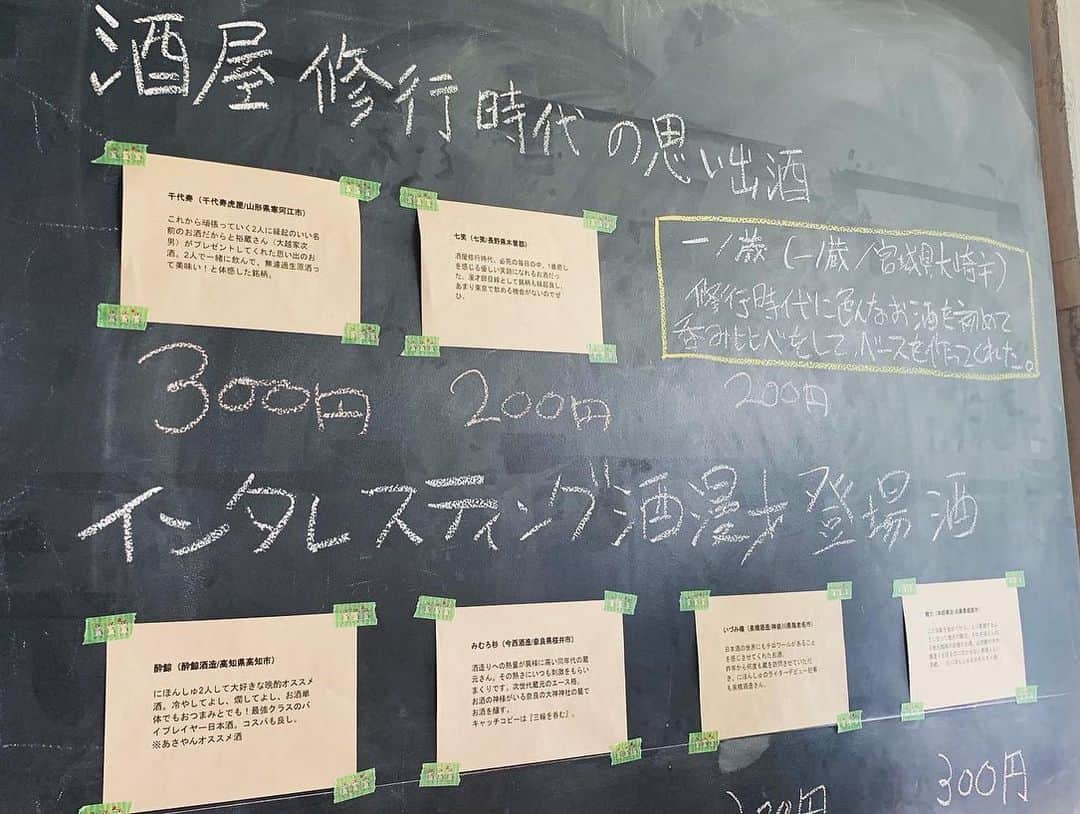 酒屋修行時代の思い出酒
千代寿（千代寿虎屋/山形県寒河江市）
これから頑張っていく2人に縁起のいい名
前のお酒だからと裕蔵さん（大越家次
男）がプレゼントしてくれた思い出のお
酒。2人で一緒に飲んで、無濾過生原酒っ
て美味い！と体感した銘柄。
300円
七笑（七笑/長野県木曽郡）
酒屋修行時代、必死の毎日の中、1番癒し
を感じる優しい笑顔になれるお酒だっ
た。漫才師目線として銘柄も縁起良し、
あまり東京で飲める機会がないのでぜ
ひ。
200円
一ノ蔵（一ノ蔵/宮城県大崎市）
修行時代に色んなお酒を初めて
呑みくらべをして、ベースを作ってくれた。
200円
インタレスティング酒漫才登場酒
酔鯨（酔鯨酒造/高知県高知市）
にほんしゅ2人して大好きな晩酌オススメ
酒。冷やしてよし、燗してよし、お酒単
体でもおつまみとでも！最強クラスのバ
イプレイヤー日本酒。コスパも良し。
※あさやんオススメ酒
みむろ杉（今西酒造/奈良県桜井市）
酒造りへの熱量が異様に高い同年代の蔵
元さん。その熱さにいつも刺激をもらい
まくりです。次世代蔵元のエース格。
お酒の神様がいる奈良の大神神社の麓で
お酒を醸す。
キャッチコピーは『三輪を呑む』。
いづみ橋（泉橋酒造/神奈川県海老名市）
日本酒の世界にもテロワールがあること
を感じさせてくれたお酒。
昨年から何度も蔵を訪問させていただ
き、にほんしゅのライターデビュー記事
も泉橋酒造さん。
300円